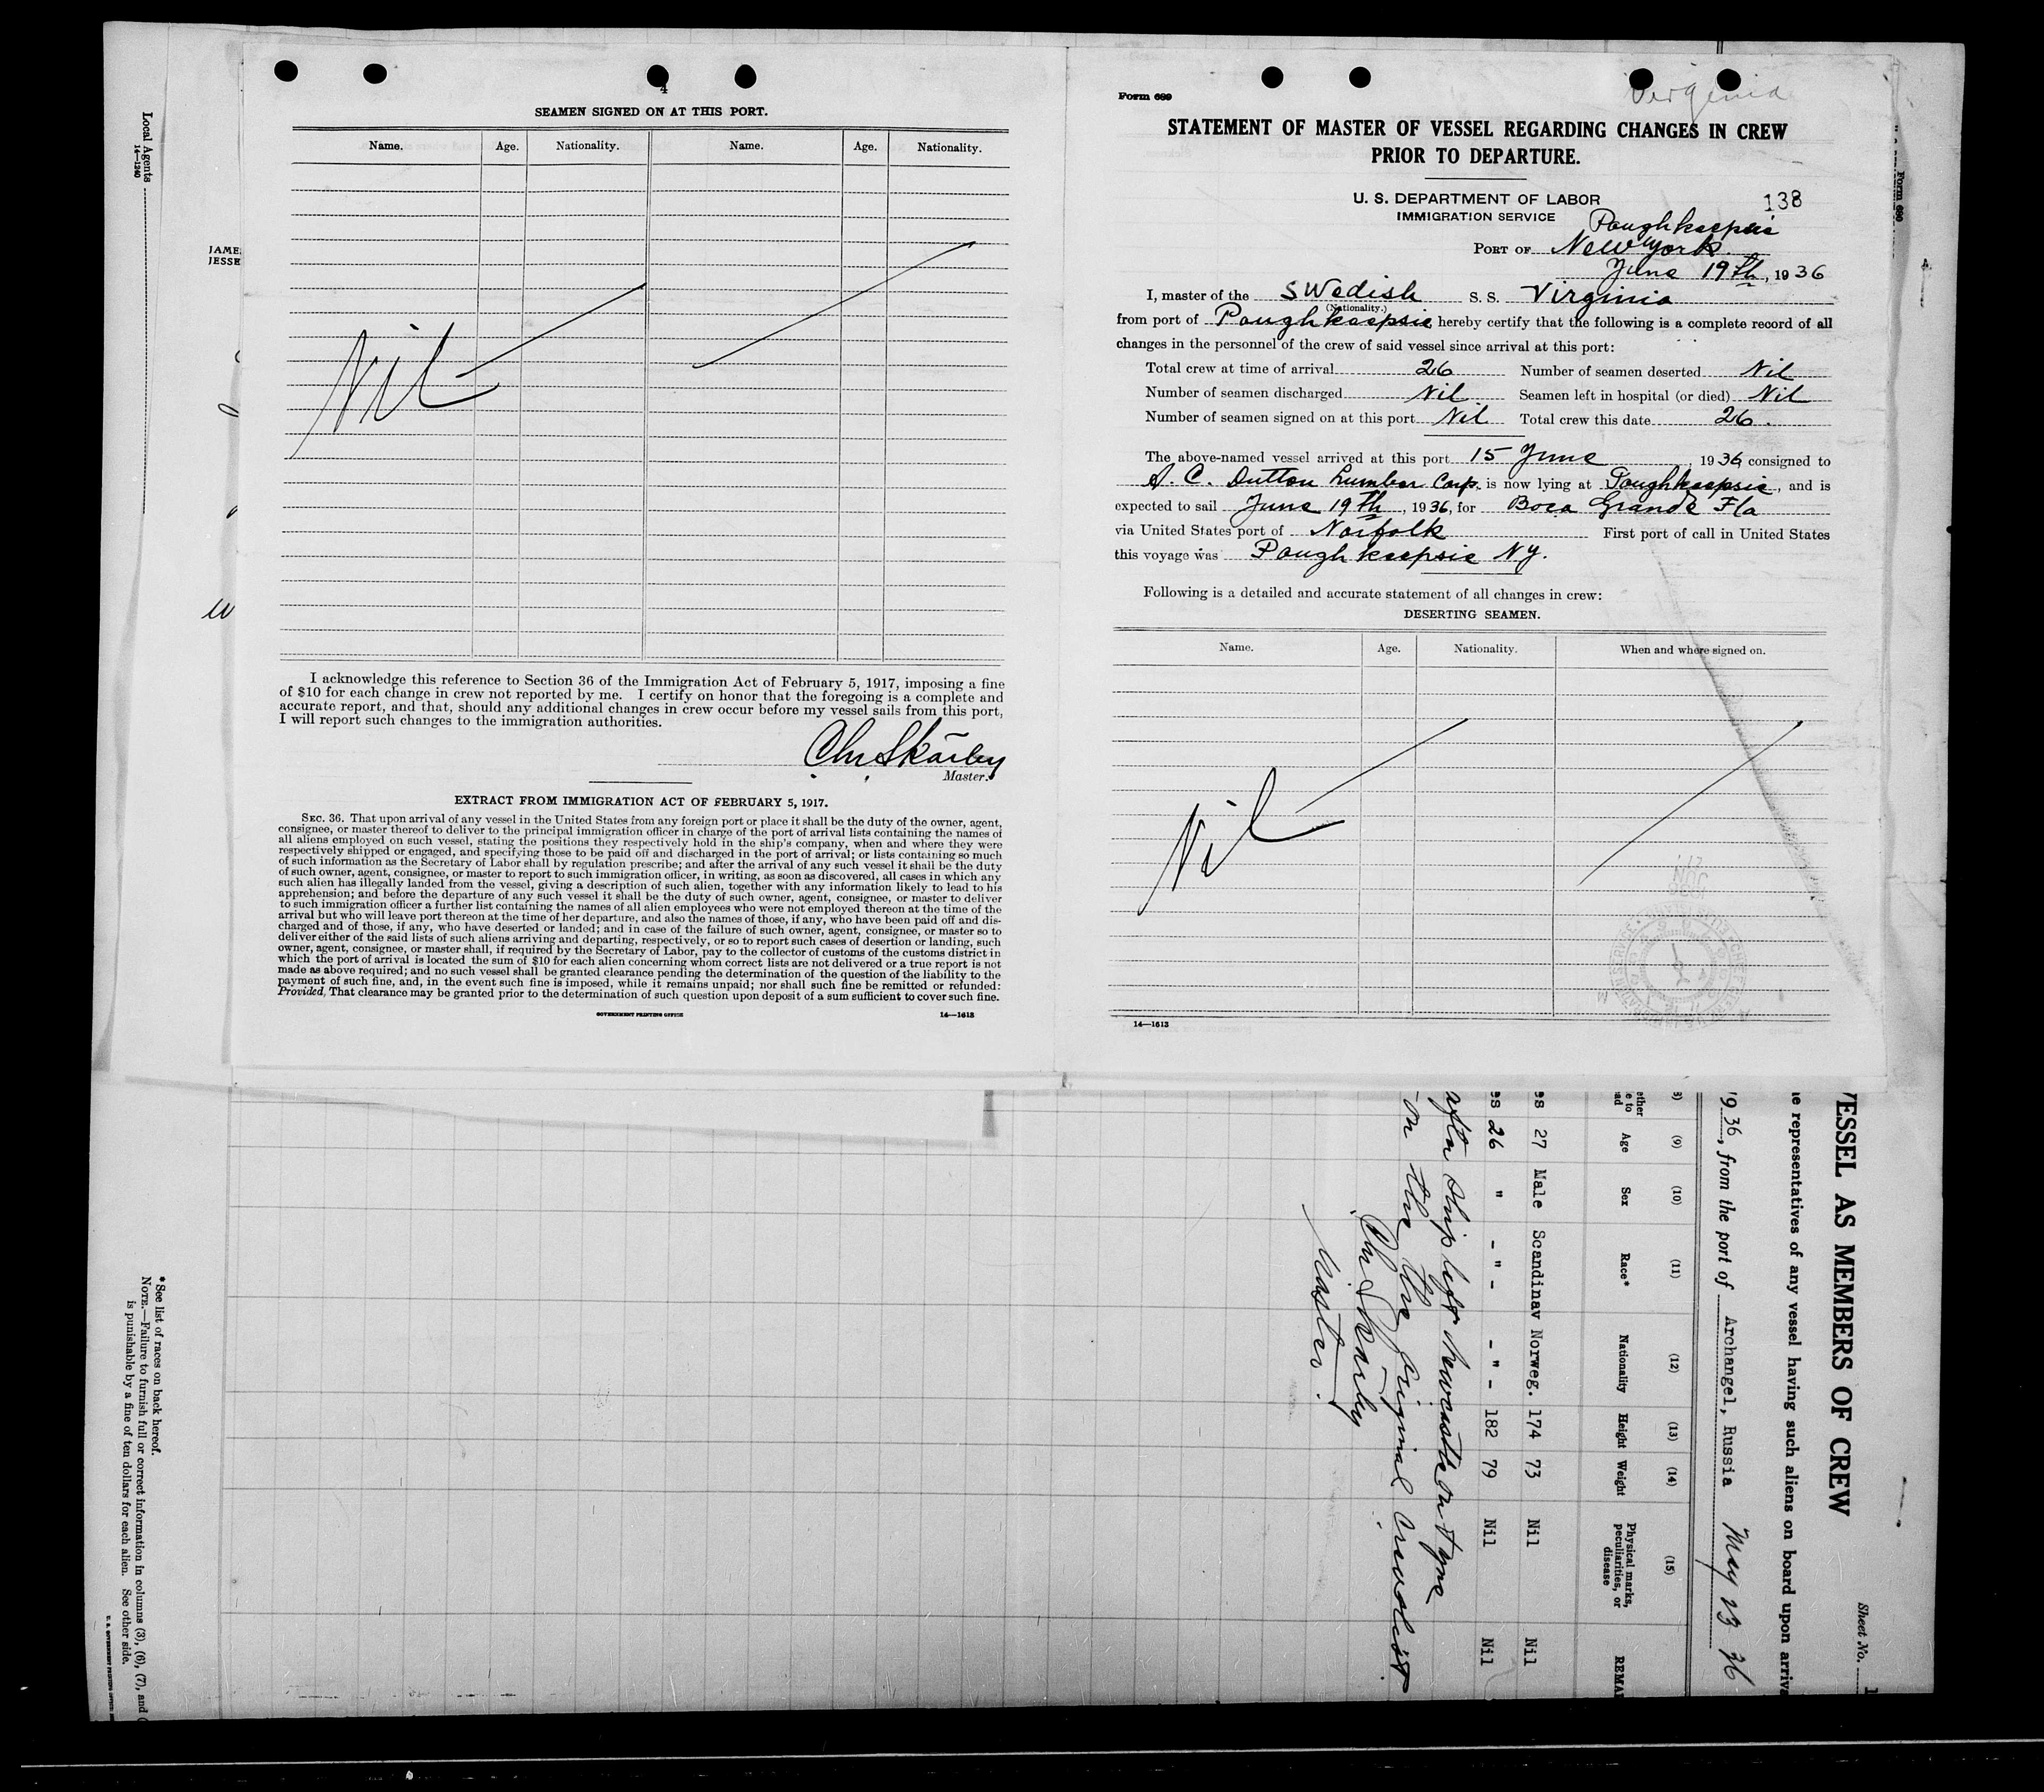 4
SEAMEN SIGNED ON AT THIS PORT.
Name. Age. Nationality. Name. Age. Nationality.
Nil
I acknowledge this reference to Section 36 of the Immigration Act of February 5, 1917, imposing a fine
of $10 for each change in crew not reported by me. I certify on honor that the foregoing is a complete and
accurate report, and that, should any additional changes in crew occur before my vessel sails from this port,
I will report such changes to the immigration authorities.
Chr Skarby
Master.
EXTRACT FROM IMMIGRATION ACT OF FEBRUARY 5, 1917.
SEC. 36. That upon arrival of any vessel in the United States from any foreign port or place it shall be the duty of the owner, agent,
consignee, or master thereof to deliver to the principal immigration officer in charge of the port of arrival lists containing the names of
all aliens employed on such vessel, stating the positions they respectively hold in the ship's company, when and where they were
respectively shipped or engaged, and specifying those to be paid off and discharged in the port of arrival; or lists containing so much
of such information as the Secretary of Labor shall by regulation prescribe; and after the arrival of any such vessel it shall be the duty
of such owner, agent, consignee, or master to report to such immigration officer, in writing, as soon as discovered, all cases in which any
such alien has illegally landed from the vessel, giving a description of such alien, together with any information likely to lead to his
apprehension; and before the departure of any such vessel it shall be the duty of such owner, agent, consignee, or master to deliver
to such immigration officer a further list containing the names of all alien employees who were not employed thereon at the time of the
arrival but who will leave port thereon at the time of her departure, and also the names of those, if any, who have been paid off and dis-
charged and of those, if any, who have deserted or landed; and in case of the failure of such owner, agent, consignee, or master so to
deliver either of the said lists of such aliens arriving and departing, respectively, or so to report such cases of desertion or landing, such
owner, agent, consignee, or master shall, if required by the Secretary of Labor, pay to the collector of customs of the customs district in
which the port of arrival is located the sum of $10 for each alien concerning whom correct lists are not delivered or a true report is not
made as above required; and no such vessel shall be granted clearance pending the determination of the question of the liability to the
payment of such fine, and, in the event such fine is imposed, while it remains unpaid; nor shall such fine be remitted or refunded:
Provided, That clearance may be granted prior to the determination of such question upon deposit of a sum sufficient to cover such fine.
GOVERNMENT PRINTING OFFICE 14—1613
Virginia
Form 689
STATEMENT OF MASTER OF VESSEL REGARDING CHANGES IN CREW
PRIOR TO DEPARTURE.
U. S. DEPARTMENT OF LABOR 138
IMMIGRATION SERVICE
Poughkeepsie
PORT OF New York
June 19th, 1936
I, master of the Swedish S. S. Virginia
(Nationality.)
from port of Poughkeepsie hereby certify that the following is a complete record of all
changes in the personnel of the crew of said vessel since arrival at this port:
Total crew at time of arrival 26 Number of seamen deserted Nil
Number of seamen discharged Nil Seamen left in hospital (or died) Nil
Number of seamen signed on at this port Nil Total crew this date 26.
The above-named vessel arrived at this port 15 June, 1936, consigned to
A. C. Dutton Lumber Corp. is now lying at Poughkeepsie, and is
expected to sail June 19th, 1936, for Boca Grande Fla
via United States port of Norfolk First port of call in United States
this voyage was Poughkeepsie NY.
Following is a detailed and accurate statement of all changes in crew:
DESERTING SEAMEN.
Name. Age. Nationality. When and where signed on.
Nil
14—1613
Local Agents
14—1240
JAME
JESSE
Form 680
VESSEL AS MEMBERS OF CREW
Sheet No. 1
e representatives of any vessel having such aliens on board upon arriva
1936, from the port of Archangel, Russia May 23 36
(9) (10) (11) (12) (13) (14) (15)
Age Sex Race* Nationality Height Weight Physical marks, peculiarities, or disease REMA
es 27 Male Scandinav Norweg. 174 73 Nil Nil
es 26 " - " - - " - 182 79 Nil Nil
after ship left Newcastle on Tyne
on the original Crewlist
Chr Skarby
Master.
*See list of races on back hereof.
NOTE.—Failure to furnish full or correct information in columns (3), (6), (7), and (
is punishable by a fine of ten dollars for each alien. See other side.